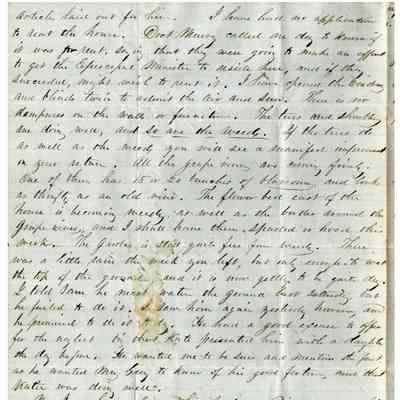 articles laid out for him. I have had no application
to rent the house. Doct Murray called one day to know if
it was for rent, saying that they were going to make an effort
to get the Episcopal Minister to reside here, and if they
succeeded, might wish to rent it. I have opened the windows
and blinds twice to admit the air and sun. There is no
dampness on the walls or furniture. The trees and shrubs
are doing well, and so are the weeds. If the trees do
as well as the weeds you will see a manifest improvement
on your return. All the grape vines are doing finely.
One of them has 15 or 20 bunches of blossoms and looks
as thrifty as an old vine. The flower bed east of the
house is becoming weedy, as well as the borders around the
Grape vines, and I shall have them spaded or hoed this
week. The garden is still quite free from weeds. There
was a little rain the week you left, but only enough to wet
the top of the ground, and it is now getting to be quite dry.
I told Sam he must water the ground last Saturday, but
he failed to do it. I saw him again yesterday however, and
he promised to do it. He had a good excuse to offer
for the neglect by
presented him with a daughter
the day before. He wanted me to be sure and mention the fact
as he wanted Mrs Gary to know of his good fortune, and that
was doing well.